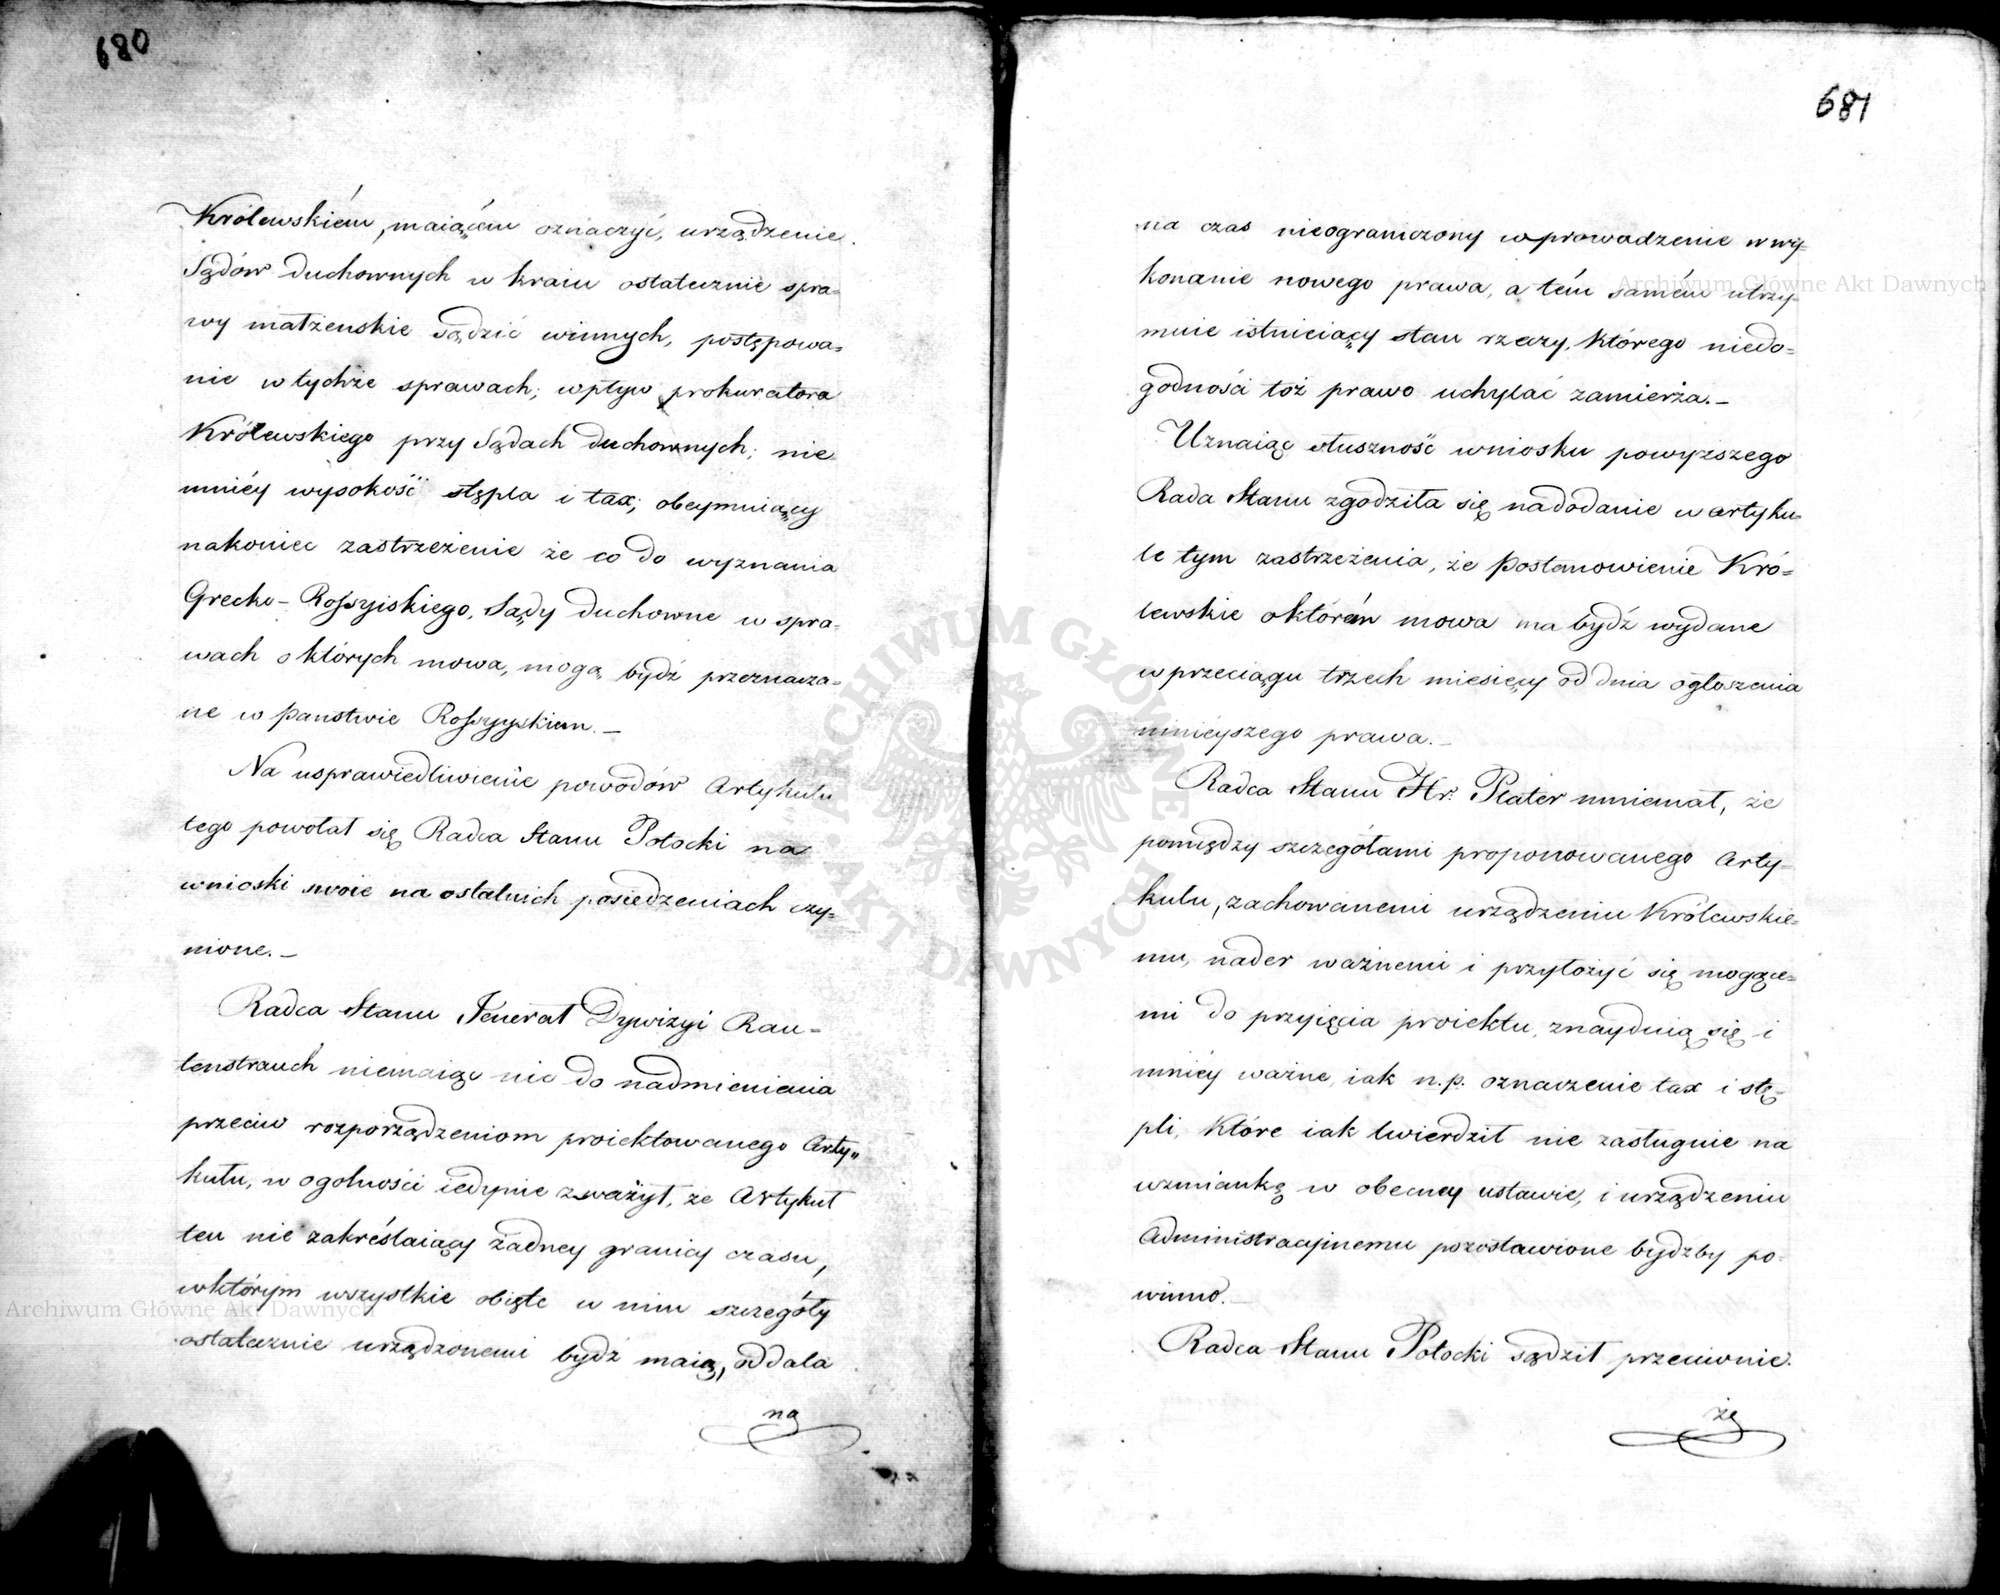 680
Królewskiém, maiącém oznaczyć, urządzenie
Sądów duchownych w kraiu ostatecznie spra=
wy małżenskie sądzić winnych, postępowa=
nie w tychże sprawach; wpływ prokuratora
Królewskiego przy Sądach duchownych; nie
mniéy wysokość stępla i tax; obeymuiący
nakoniec zastrzeżenie że co do wyznania
Grecko-Rossyiskiego, Sądy duchowne w spra=
wach o których mowa, mogą bydź przeznacza=
ne w Państwie Rossyyskiem._
Na usprawiedliwienie powodów Artykułu
tego powołał się Radca Stanu Potocki na
wnioski swoie na ostatnich posiedzeniach czy=
nione._
Radca Stanu Jenerał Dywizyi Rau=
tenstrauch niemaiąc nic do nadmienienia
przeciw rozporządzeniom proiektowanego Arty„
kułu, w ogolności iedynie zważył, że Artykuł
ten nie zakréślaiący żadney granicy czasu,
w którym wszystkie obięte w nim szczegóły
ostatecznie urządzonemi bydź maią, oddala
na
681
na czas nieograniczony wprowadzenie w wy=
konanie nowego prawa, a tém samém utrzy=
muie istnieiący stan rzeczy, którego niedo=
godności toż prawo uchylać zamierża._
Uznaiąc słuszność wniosku powyższego
Rada Stanu zgodziła się na dodanie w artyku=
le tym zastrzeżenia, że Postanowienie Kró=
lewskie o którém mowa ma bydź wydane
w przeciągu trzech miesięcy od dnia ogłoszenia
ninieyszego prawa._
Radca Stanu Hr. Plater mniemał, że
pomiędzy szczegółami proponowanego Arty=
kułu, zachowanemi urządzeniu Królewskie=
mu, nader ważnemi i przyłożyć się mogące=
mi do przyięcia proiektu, znayduią się i
mniéy ważne, iak n.p. oznaczenie tax i stę=
pli, które iak twierdził nie zasługuie na
wzmiankę w obecney ustawie, i urządzeniu
Administracyinemu pozostawione bydźby po=
winno._
Radca Stanu Potocki sądził przeciwnie.
że
Archiwum Główne Akt Dawnych
Archiwum Główne Akt Dawnych
ARCHIWUM GŁÓWNE AKT DAWNYCH